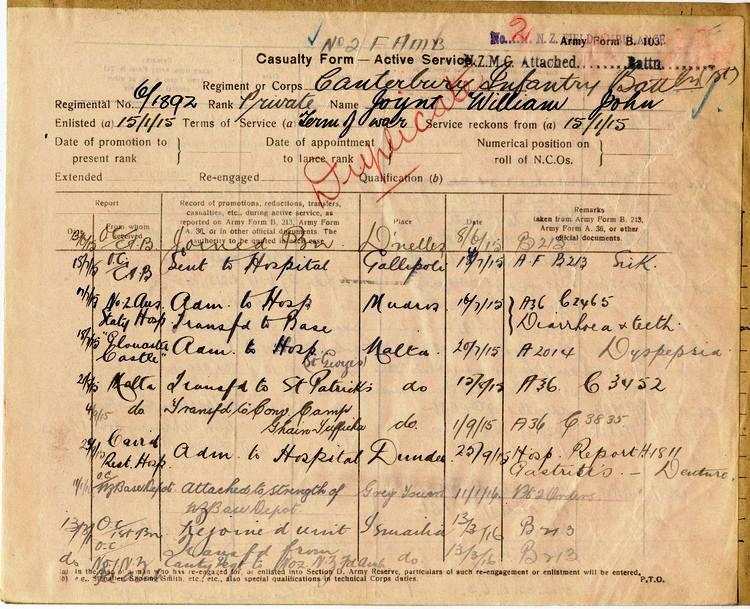 No 2 F AMB
No. 2 N. Z. FIELD AMBULANCE
Army Form B. 103.
Casualty Form — Active Service.
N.Z.M.C. Attached........Battn.
Regiment or Corps Canterbury Infantry Batt (1st)
Regimental No. 6/1892 Rank Private Name Joynt William John
Enlisted (a) 15/1/15 Terms of Service (a) Term of war Service reckons from (a) 15/1/15
Duplicate
Date of promotion to present rank } Date of appointment to lance rank } Numerical position on roll of N.C.Os. }
Extended Re-engaged Qualification (b)
Report
Record of promotions, reductions, transfers, casualties, etc., during active service, as reported on Army Form B. 213, Army Form A. 36, or in other official documents. The authority to be quoted in each case.
Place
Date
Remarks taken from Army Form B. 213, Army Form A. 36, or other official documents.
Date From whom received
O.C. C.I.B. Joined Bn D'nelles 8/6/15 B213
15/7/15 O.C. C.I.B Sent to Hospital Gallipoli /7/15 A.F B213 Sick.
17/7/15 No. 2 Aus. Adm. to Hosp Mudros 16/7/15 } A36 C2465
Staty Hosp Transf'd to Base Diarrhoea & teeth.
"Gloucester Castle" Adm. to Hosp (St Georges) Malta. 20/7/15 A2014 Dyspepsia.
Malta Transf'd to St Patricks do A36. C3452
do Transf'd to Con. Camp
Ghain Tuffieha do. 1/9/15 A36 C3835
Caird Rest. Hosp. Adm. to Hospital Dundee 25/9/15 Hosp. Report H1811
Gastritis. — Denture.
O.C. NZ Base Depot. Attached to strength of Grey Towers 11/1/16
NZ Base Depot
O.C 1st Bn. Rejoined unit Ismailia 13/3/16 B213
do O.C No 1 N.Z Transf'd from
Canty Regt to No 2 N.Z Fd Amb. do 13/3/16 B213
(a) In the case of a man who has re-engaged for, or enlisted into Section D, Army Reserve, particulars of such re-engagement or enlistment will be entered.
(b) e.g., Signaller, Shoeing Smith, etc., etc., also special qualifications in technical Corps duties. P.T.O.